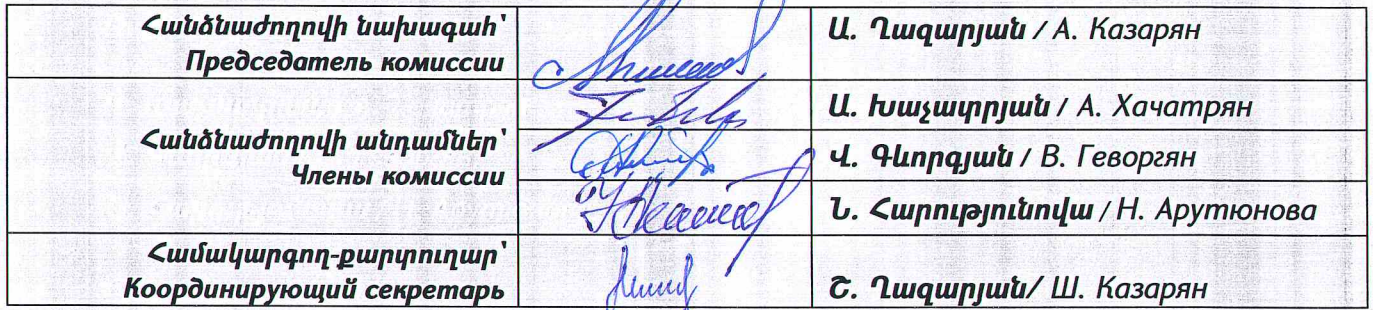 Հանձնաժողովի նախագահ՝
Председатель комиссии
Ա. Ղազարյան / А. Казарян
Հանձնաժողովի անդամներ՝
Члены комиссии
Ա. Խաչատրյան / А. Хачатрян
Վ. Գևորգյան / В. Геворгян
Ն. Հարությունովա / Н. Арутюнова
Համակարգող-քարտուղար՝
Координирующий секретарь
Շ. Ղազարյան/ Ш. Казарян